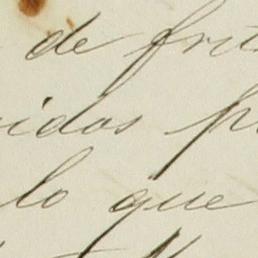 de frut
idos p
lo que